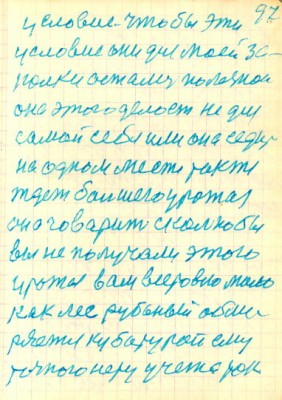 97
условие. чтобы эти
условие они для моей за-
остались полезной
она этого делает не для
самой себя или она седи
на одном месте
ждет большего урожая
она говарит сколкобы
вы не получали этого
урожая вам всеровно мало
как лес рубаный обме-
ряетца кубатурой ему
точного нету учета как